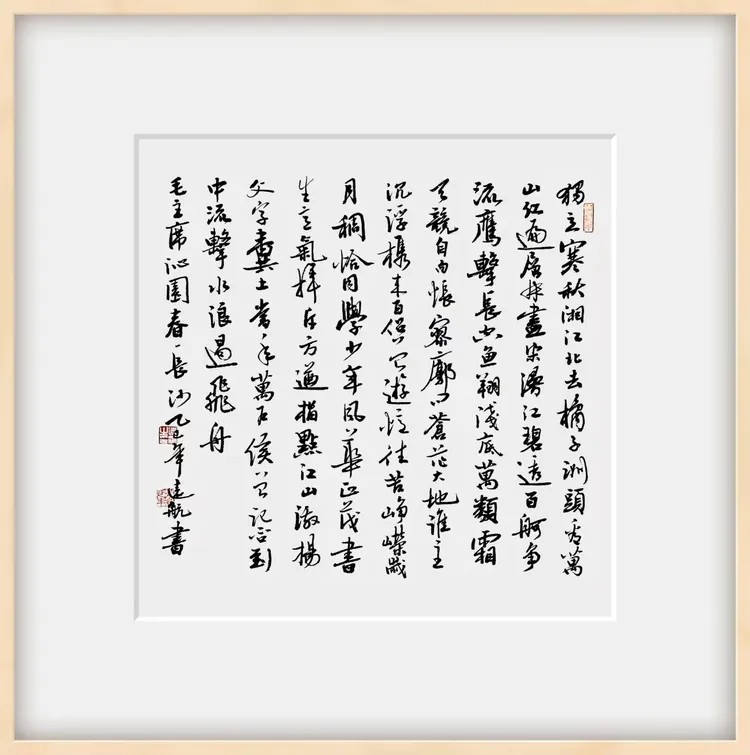 獨立寒秋湘江北去橘子洲頭看萬
山紅遍層林盡染漫江碧透百舸争
流鷹擊長空魚翔淺底萬類霜
天競自由悵寥廓問蒼茫大地誰主
沉浮攜来百侣曾遊憶往昔崢嶸歲
月稠恰同學少年風華正茂書
生意氣揮斥方遒指點江山激揚
文字糞土當年萬户侯曾記否到
中流擊水浪遏飛舟
毛主席沁園春長沙乙巳年建航書